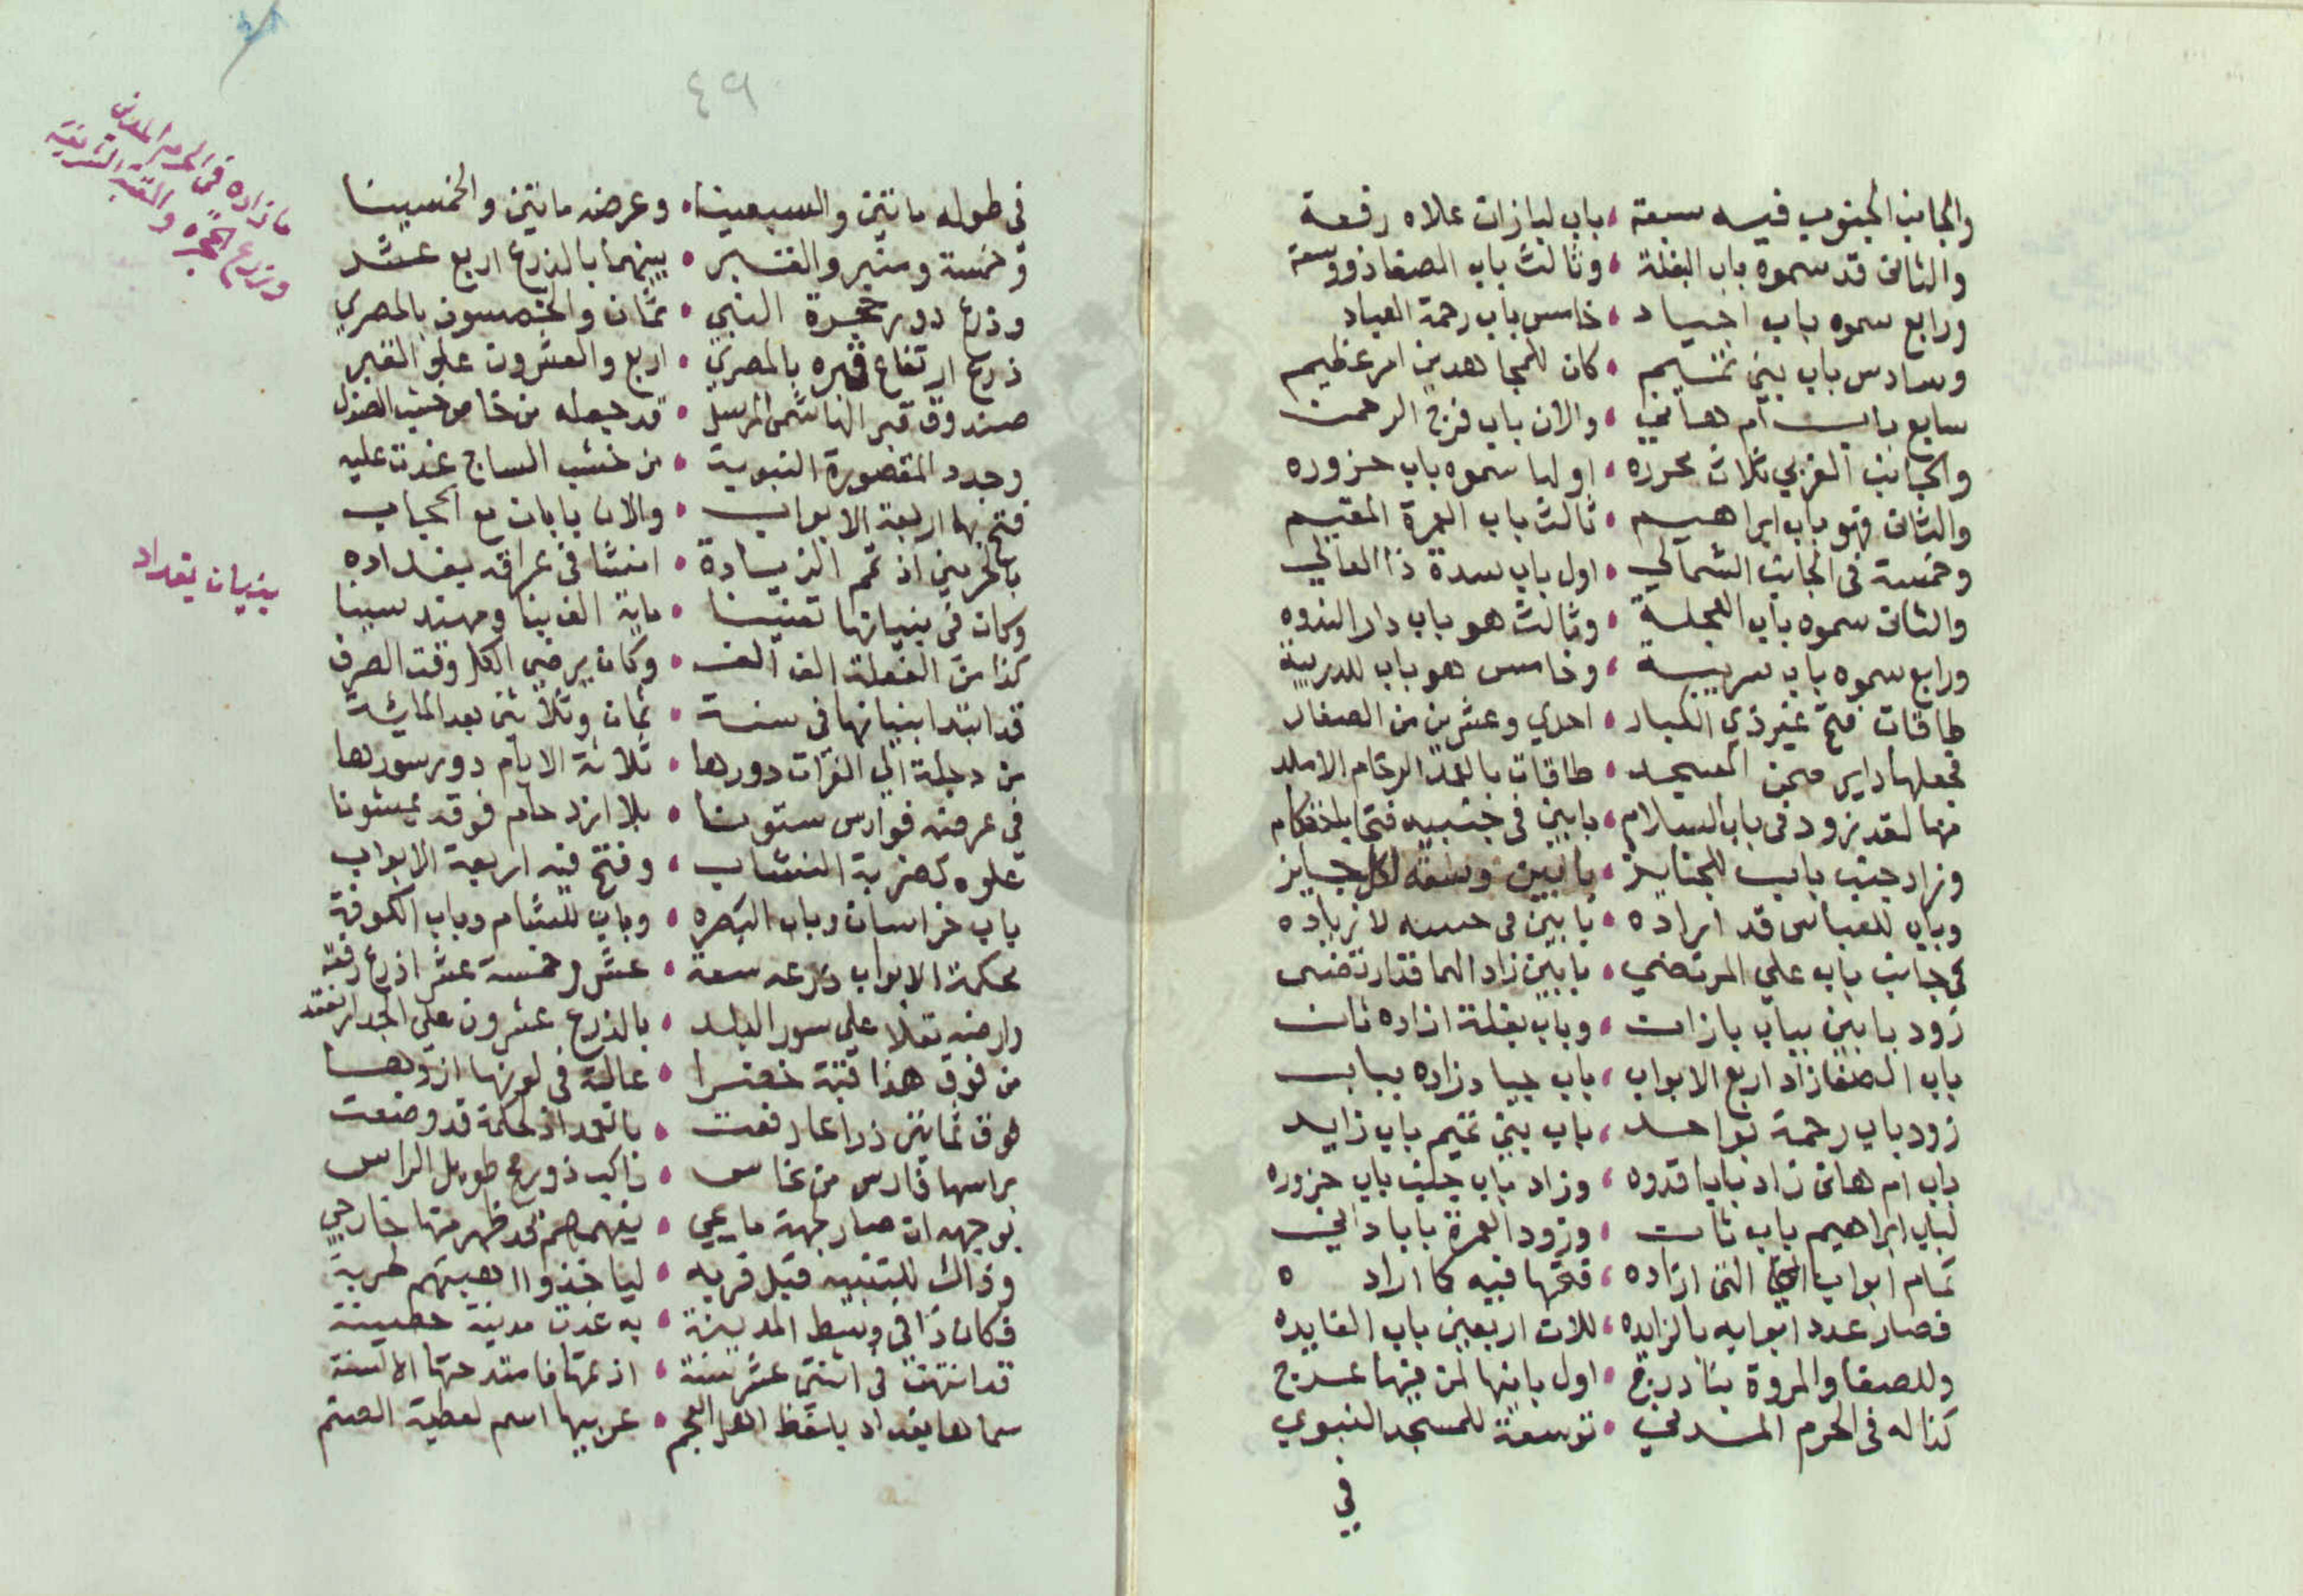 والجانب الجنوب فيه سبعة ، باب لبازان علاه رفعة
والثانى قد سموه باب البغلة ، وثالث باب الصفا ذو وسعة
ورابع سموه باب اجياد ، خامس باب رحمة العباد
وسادس باب بنى تميم ، كان للمجاهدين امر عظيم
سابع باب ام هانى ، والان باب فرج الرحمن
والجانب الغربي ثلاث محرره ، اولها سموه باب حزوره
والثانى فهو باب ابراهيم ، ثالث باب العمرة المقيم
وخمسة فى الجانب الشمالي ، اول باب سدة ذا العالي
والثانى سموه باب العجلة ، وثالث هو باب دار الندوه
ورابع سموه باب سريبة ، وخامس هو باب للدريبة
طاقات فتح غير ذي الكبار ، احدي وعشرين من الصغار
فجعلها داير صحن المسجد ، طاقات بالعمد الرخام الاملد
منها لقد زود فى باب السلام ، بابين فى جنبيه فتحا
وزاد جنب باب للجنايز ، بابين وسعه لكل جايز
وباب للعباس قد ازاده ، بابين فى حسنه لا زياده
فى جانب باب علي المرتضي ، بابين زاد
زود بابين بباب بازان ، وباب بغلة ازاده ثان
باب الصفا زاد اربع الابواب ، باب جياد زاده بباب
زود باب رحمة بواحد ، باب بني تميم باب زايد
باب ام هانى زاد بابا قدوه ، وزاد باب جنب باب حزوره
لباب ابراهيم باب ثان ، وزود العمرة بابا داني
تمام ابواب التى ازاده ، فتحها فيه كما اراد ه
فصار عدد ابوابه بالزايده ، ثلاث اربعين باب الفايده
وللصفا والمروة بنا درج ، اول بانيها لمن فيها عرج
كذا له فى الحرم المدني ، توسعة للمسجد النبوي
في
٤٩
ما زاده فى الحرم المدنى
وذرع الحجره والقبة الشريفة
فى طوله مائتين والسبعينا ، وعرضه مائتين والخمسينا
وخمسة ومنبر والقبر ، بينهما بالذرع اربع عشر
وذرع دور حجرة النبي ، ثمان والخمسون بالمصري
ذرع ارتفاع قبره بالمصري ، اربع والعشرون علو القبر
صندوق قبر الهاشمى المرسل ، قد جعله من خاص خشب الصندل
وجدد المقصورة النبوية ، من خشب الساج غدت عليه
فتح بها اربعة الابواب ، والان بابان مع الحجاب
بالحرمين اذ تم الزيادة ، انشا فى عراقه بغداده
بنيان بغداد
وكان فى بنيانها تعنينا ، ماية الف بنا ومهندسينا
كذا من الفعلة الف الف ، وكان يرضي الكل وقت الصرف
قد ابتدا بنيانها فى سنة ، ثمان وثلاثين بعد المائة
من دجلة الي الفرات دورها ، ثلاثة الايام دور سورها
فى عرضه فوارس ستونا ، بلا ازدحام فوقه يمشونا
علوه كضربة النشاب ، وفتح فيه اربعة الابواب
باب خراسان وباب البصره ، وباب للشام وباب الكوفة
محكمة الابواب ذرعه سعة ، عشر وخمسة عشر اذرع رفعة
وارضه تعلا علي سور البلد ، بالذرع عشرون علي الجدار
من فوق هذا قبة خضرا ، عالية فى لونها
فوق ثمانين ذراعا رفعت ، بالعمد لحكمة قد وضعت
براسها فارس من نحاس ، راكب ذو رمح طويل الراس
بوجهه ان صار جهة ما يجي ، يفهمهم قد ظهر منها خارجي
وذاك للتنبيه قبل قربه ، لياخذوا اهبتهم لحربه
فكان ذا فى وسط المدينة ، به غدت مدينة حصينة
قد انتهت فى اثنتى عشر سنة ، اذ تمها فامتدحتها الالسنة
سماها بغداد بلفظ اهل العجم ، عربيها اسم لعطية الصنم